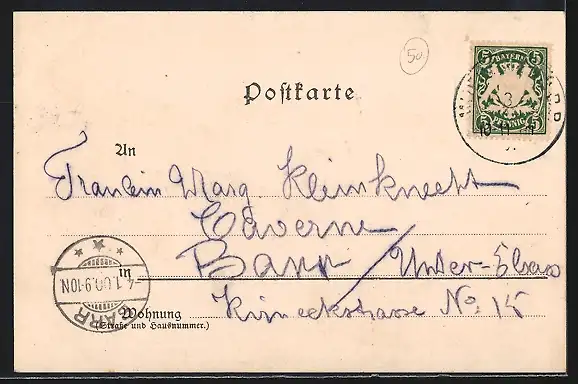 50
BAYERN
5 5
3
5 5
PFENNIG
Postkarte
An
Fräulein Marg Kleinknecht
Taverne
in Barr / Unter-Elsass
-4.1.00.9-10N
BARR
Kirneckstrasse No. 15
Wohnung
(Straße und Hausnummer.)